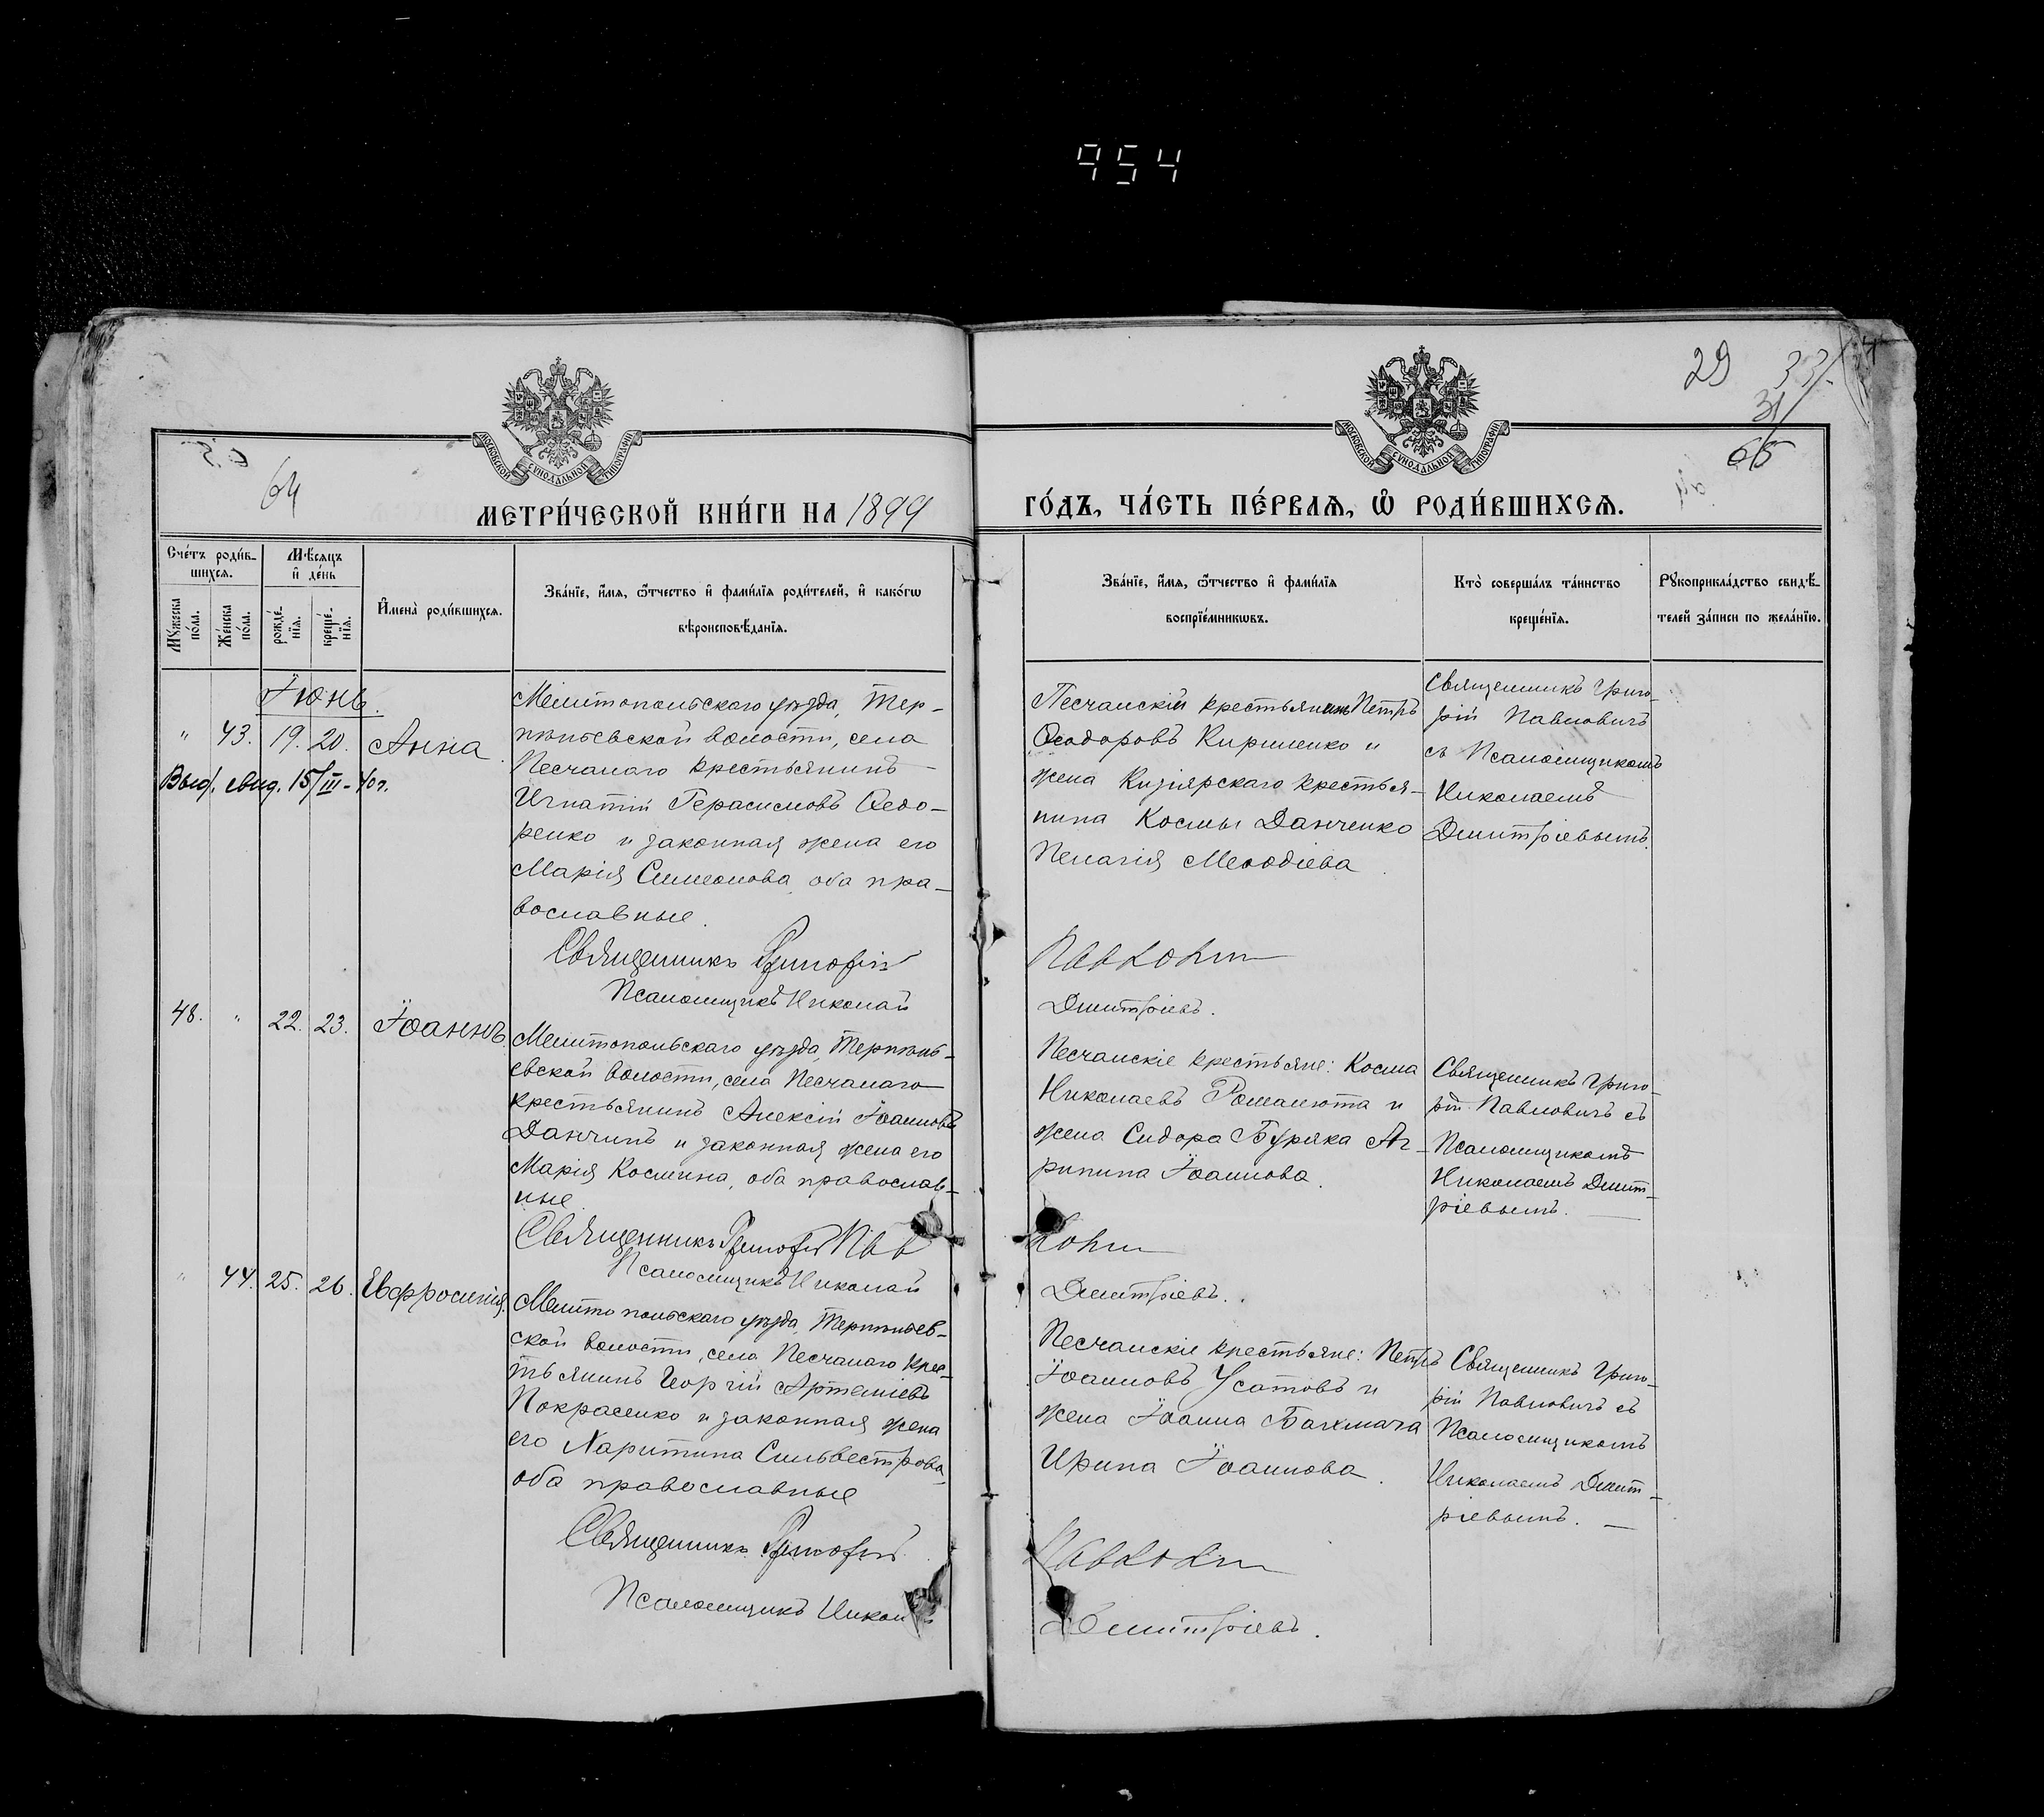 954
29 33
31
65
64
МОСКОВСКОЙ СѴНОДАЛЬНОЙ ТИПОГРАФІИ
МОСКОВСКОЙ СѴНОДАЛЬНОЙ ТИПОГРАФІИ
МЕТРИ́ЧЕСКОЙ КНИ́ГИ НА 1899
ГО́ДЪ, ЧА́СТЬ ПЕ́РВАѦ, Ѡ҆ РОДИ́ВШИХСѦ.
Сче́тъ роди́в-
шихсѧ.
Мѣ́сяцъ
и҆ де́нь
Мꙋ́жеска по́ла.
Же́нска по́ла.
рожде́-нїѧ.
креще́-нїѧ.
И҆мена̀ роди́вшихсѧ.
Зва́нїе, и҆́мѧ, ѻ҆́тчество и҆ фами́лїѧ роди́телей, и҆ како́гѡ
вѣроисповѣ́данїѧ.
Зва́нїе, и҆́мѧ, ѻ҆́тчество и҆ фами́лїѧ
воспрїе́мникѡвъ.
Кто̀ соверша́лъ та́инство
креще́нїѧ.
Рꙋкоприкла́дство свидѣ́-
телей за́писи по жела́нїю.
Іюнь.
" 43. 19. 20. Анна
Выд. свид. 15/III-40г.
Мелитопольскаго уѣзда, Тер-
пѣньевской волости, села
Песчанаго крестьянинъ
Игнатій Герасимовъ Ѳедо-
ренко и законная жена его
Марія Симеонова, оба пра-
вославные.
Священникъ Григорій
Псаломщикъ Николай
Песчанскій крестьянинъ Петръ
Ѳеодоровъ Кириленко и
жена Кизіярскаго крестья-
нина Космы Данченко
Пелагія Меѳодіева
Павловичъ
Дмитріевъ.
Священникъ Григо-
рій Павловичъ
съ Псаломщикомъ
Николаемъ
Дмитріевымъ.
48. " 22. 23. Іоаннъ.
Мелитопольскаго уѣзда, Терпѣнь-
евской волости, села Песчанаго
крестьянинъ Алексій Іоанновъ
Данчинъ и законная жена его
Марія Космина, оба православ-
ные
Священникъ Григорій Пав
Псаломщикъ Николай
Песчанскіе крестьяне: Косма
Николаевъ Романюта и
жена Сидора Буряка Аг-
рипина Іоаннова.
ловичъ
Дмитріевъ.
Священникъ Григо-
рій Павловичъ съ
Псаломщикомъ
Николаемъ Дмит-
ріевымъ.
" 44. 25. 26. Евфросинія.
Мелитопольскаго уѣзда, Терпѣньев-
ской волости, села Песчанаго крес-
тьянинъ Георгій Артеміевъ
Покрасенко и законная жена
его Харитина Сильвестрова
оба православные
Священникъ Григорій
Псаломщикъ Никол
Песчанскіе крестьяне: Петръ
Іоанновъ Усатовъ и
жена Іоанна Бахмача
Ирина Іоаннова.
Павловичъ
Дмитріевъ.
Священникъ Григо-
рій Павловичъ съ
Псаломщикомъ
Николаемъ Дмит-
ріевымъ.